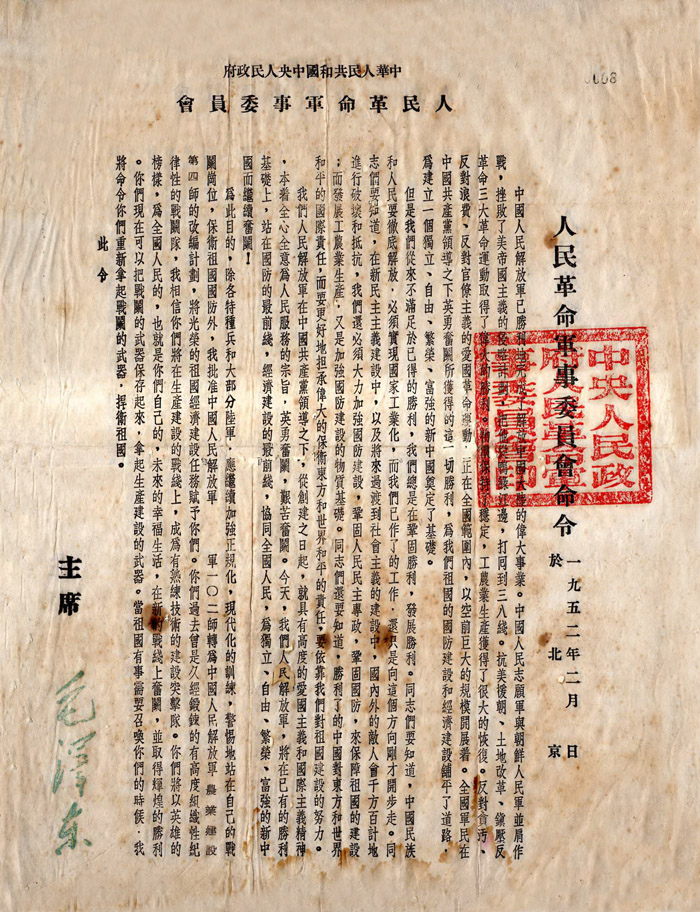 0008
中華人民共和國中央人民政府
人民革命軍事委員會
人民革命軍事委員會命令
一九五二年二月 日
於北京
中國人民解放軍已勝利地完成了解放中國大陸的偉大事業。中國人民志願軍與朝鮮人民軍並肩作
戰,挫敗了美帝國主義的侵略計劃,把他從鴨綠江邊,打囘到三八綫。抗美援朝、土地改革、鎭壓反
革命三大革命運動取得了偉大的勝利。物價保持了穩定,工農業生產獲得了很大的恢復。反對貪污、
反對浪費、反對官條主義的愛國革命運動,正在全國範圍內,以空前巨大的規模開展着。全國軍民在
中國共產黨領導之下英勇奮鬭所獲得的這一切勝利,爲我們祖國的國防建設和經濟建設鋪平了道路,
爲建立一個獨立、自由、繁榮、富強的新中國奠定了基礎。
但是我們從來不滿足於已得的勝利,我們總是在鞏固勝利,發展勝利。同志們要知道,中國民族
和人民要徹底解放,必須實現國家工業化,而我們已作了的工作,還只是向這個方向剛才開步走。同
志們要知道,在新民主主義建設中,以及將來過渡到社會主義的建設中,國內外的敵人會千方百計地
進行破壞和抵抗,我們還必須大力加強國防建設,鞏固人民民主專政,鞏固國防,來保障祖國的建設
;而發展工農業生產,又是加強國防建設的物質基礎。同志們還要知道,勝利了的中國對東方和世界
和平的國際責任,而要更好地担承偉大的保衛東方和世界和平的責任,要依靠我們對祖國建設的努力。
我們人民解放軍在中國共產黨領導之下,從創建之日起,就具有高度的愛國主義和國際主義精神
,本着全心全意爲人民服務的宗旨,英勇奮鬭,艱苦奮鬭。今天,我們人民解放軍,將在已有的勝利
基礎上,站在國防的最前綫,經濟建設的最前綫,協同全國人民,爲獨立、自由、繁榮、富強的新中
國而繼續奮鬭!
爲此目的,除各特種兵和大部分陸軍,應繼續加強正規化,現代化的訓練,警惕地站在自己的戰
鬭崗位,保衛祖國國防外,我批准中國人民解放軍 軍一〇二師轉爲中國人民解放軍農業建設
第四師的改編計劃,將光榮的祖國經濟建設任務賦予你們。你們過去曾是久經鍛鍊的有高度組織性紀
律性的戰鬭隊,我相信你們將在生產建設的戰綫上,成爲有熟練技術的建設突擊隊。你們將以英雄的
榜樣,爲全國人民的,也就是你們自己的,未來的幸福生活,在新的戰綫上奮鬭,並取得輝煌的勝利
。你們現在可以把戰鬭的武器保存起來,拿起生產建設的武器。當祖國有事需要召喚你們的時候,我
將命令你們重新拿起戰鬭的武器,捍衛祖國。
此令
主席
毛澤東